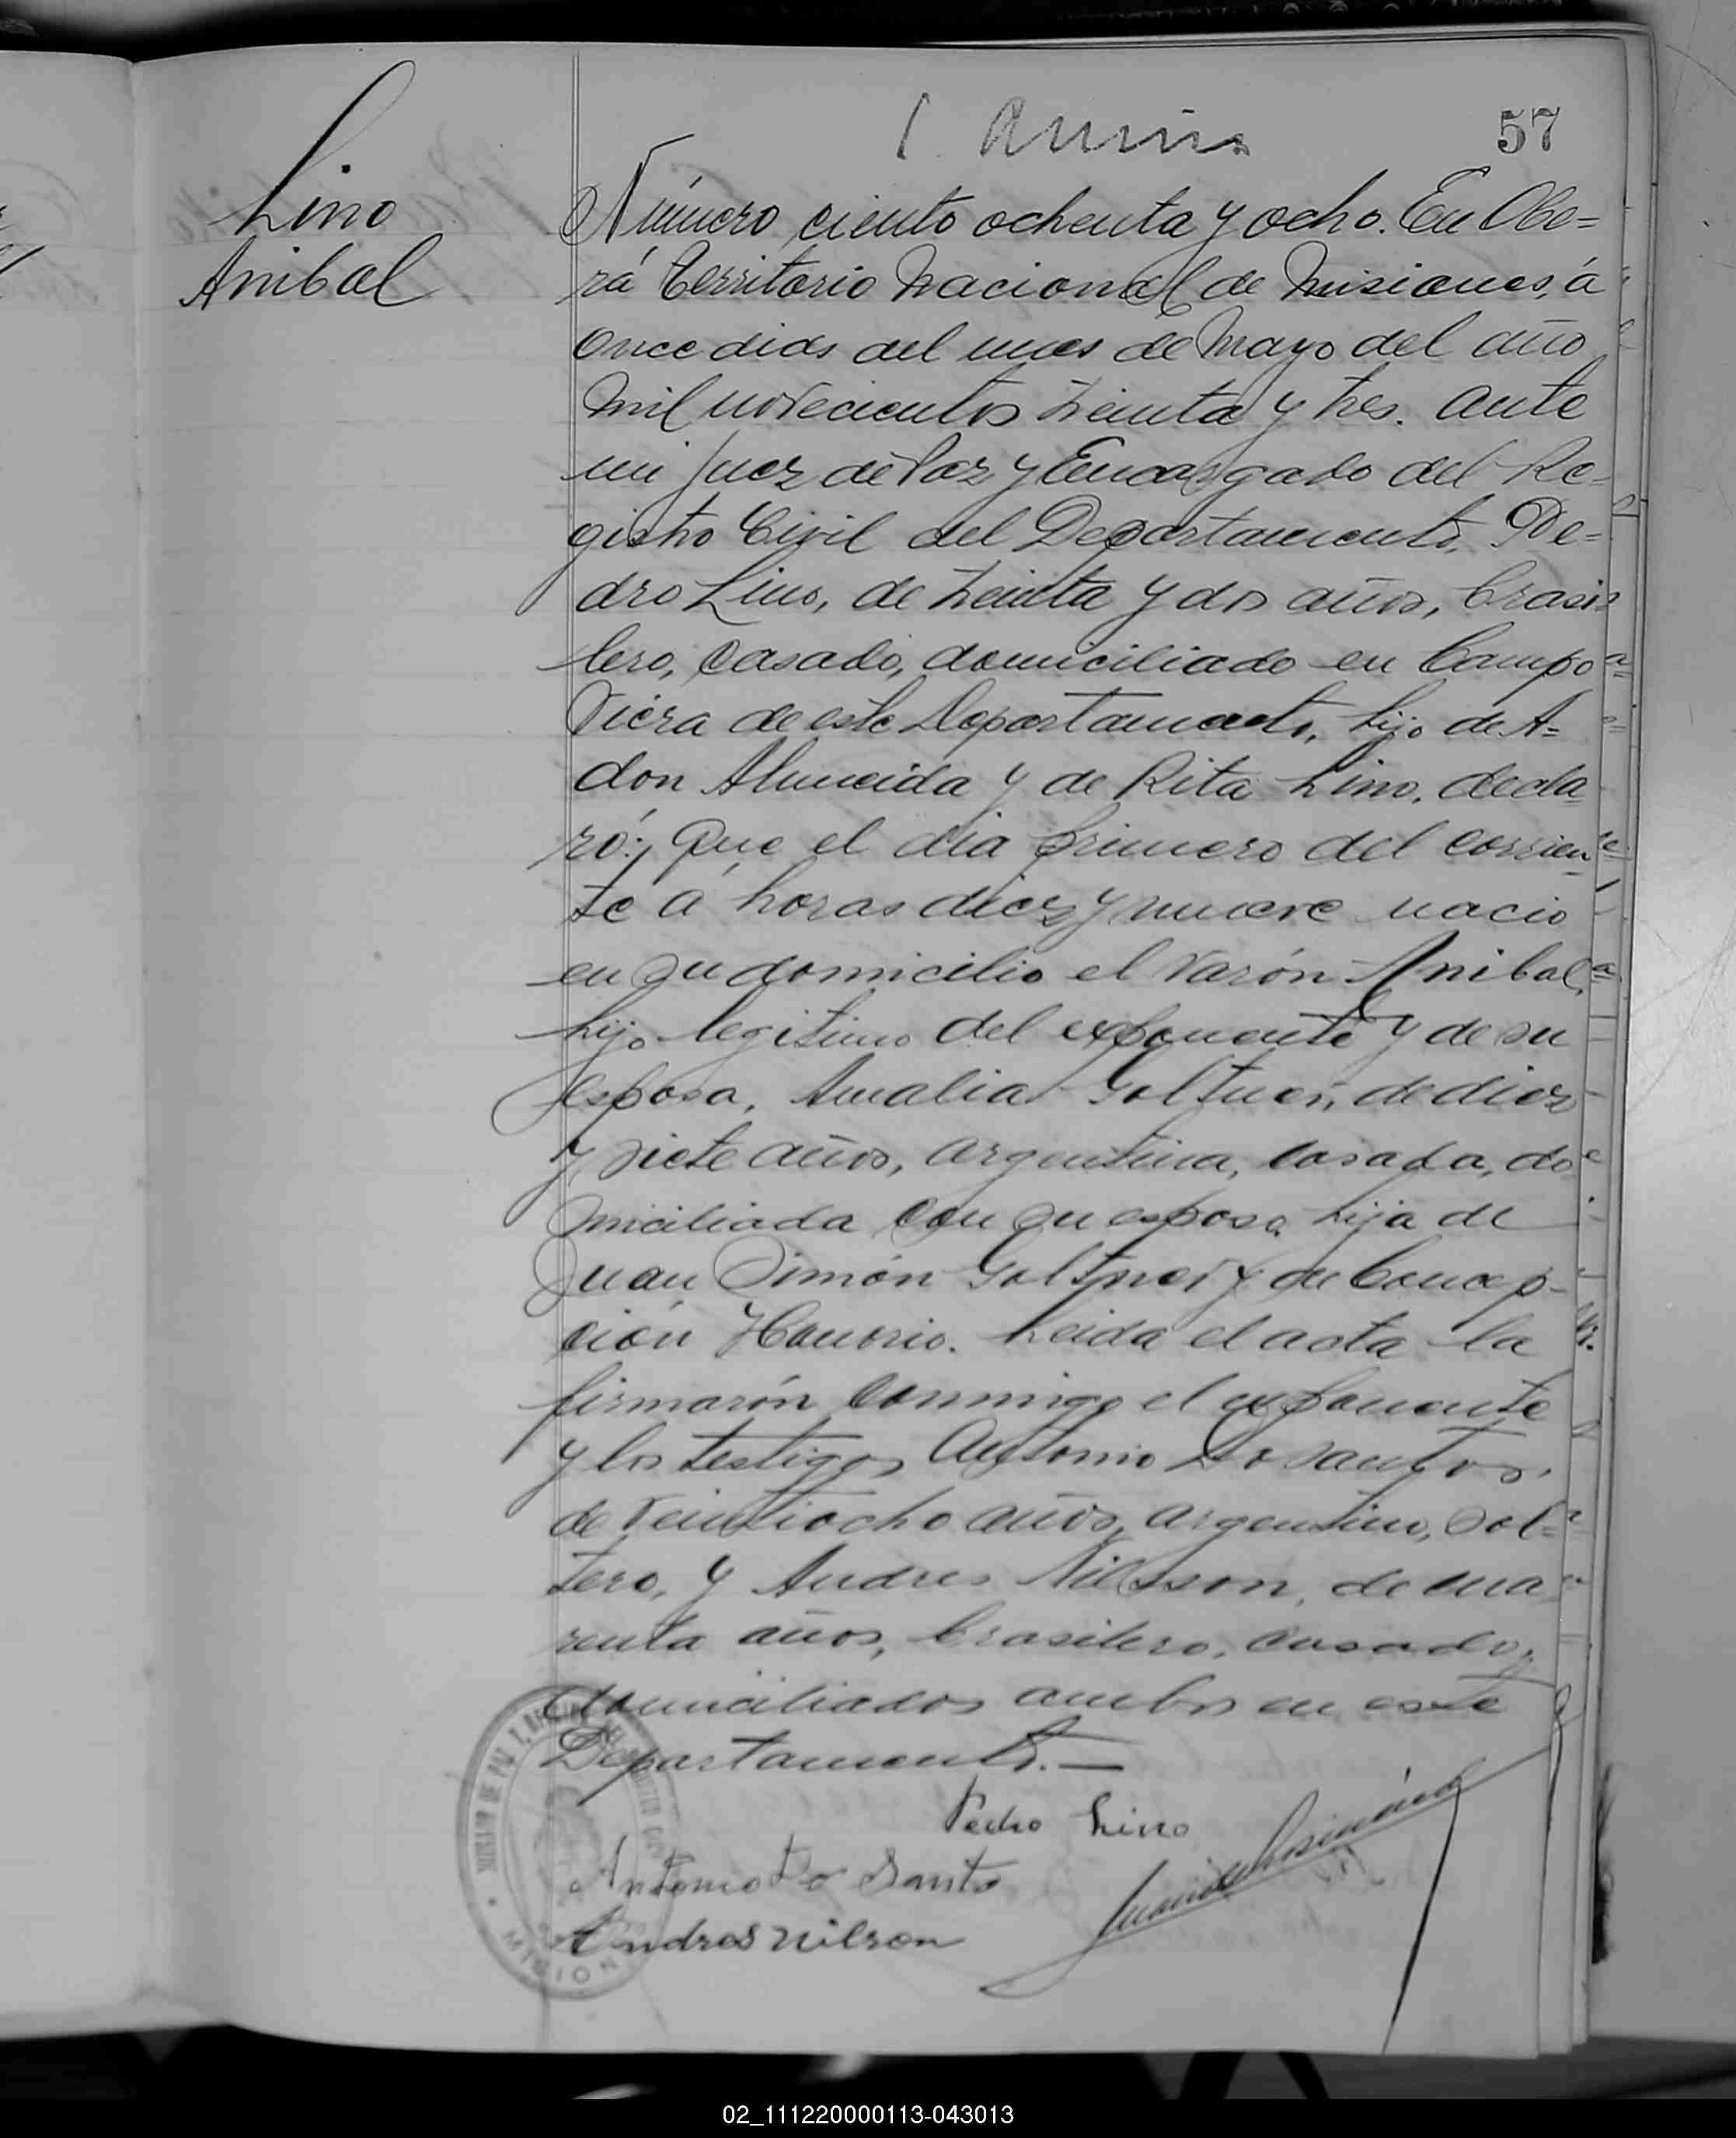 57
Lino
Anibal
Número ciento ochenta y ocho. En Obe=
rá Territorio Nacional de Misiones, á
once dias del mes de Mayo del año
mil novecientos treinta y tres. ante
mi Juez de Paz y Encargado del Re-
gistro Civil del Departamento, Pe=
dro Lino, de treinta y dos años, brasi=
lero, casado, domiciliado en Campo
Viera de este Departamento, hijo de A=
don Almeida y de Rita Lino, decla
ró: Que el dia primero del corrien
te á horas diez y nueve nacio
en su domicilio el varón Anibal,
hijo legitimo del exponente y de su
esposa, Amalia de diez
y siete años, argentina, casada, do
miciliada con su esposo, hija de
Juan Simón y de Concep-
ción Honorio. Leida el acta la
firmarón conmigo el exponente
y los testigos Antonio Do Santos,
de veintiocho años, argentino, sol=
tero, y Andres Nilsson, de cua
renta años, brasilero, casado,
domiciliados ambos en este
Departamento.—
Pedro Lino
Antonio Do Santo
Andres Nilson
MISIONES
02_111220000113-043013